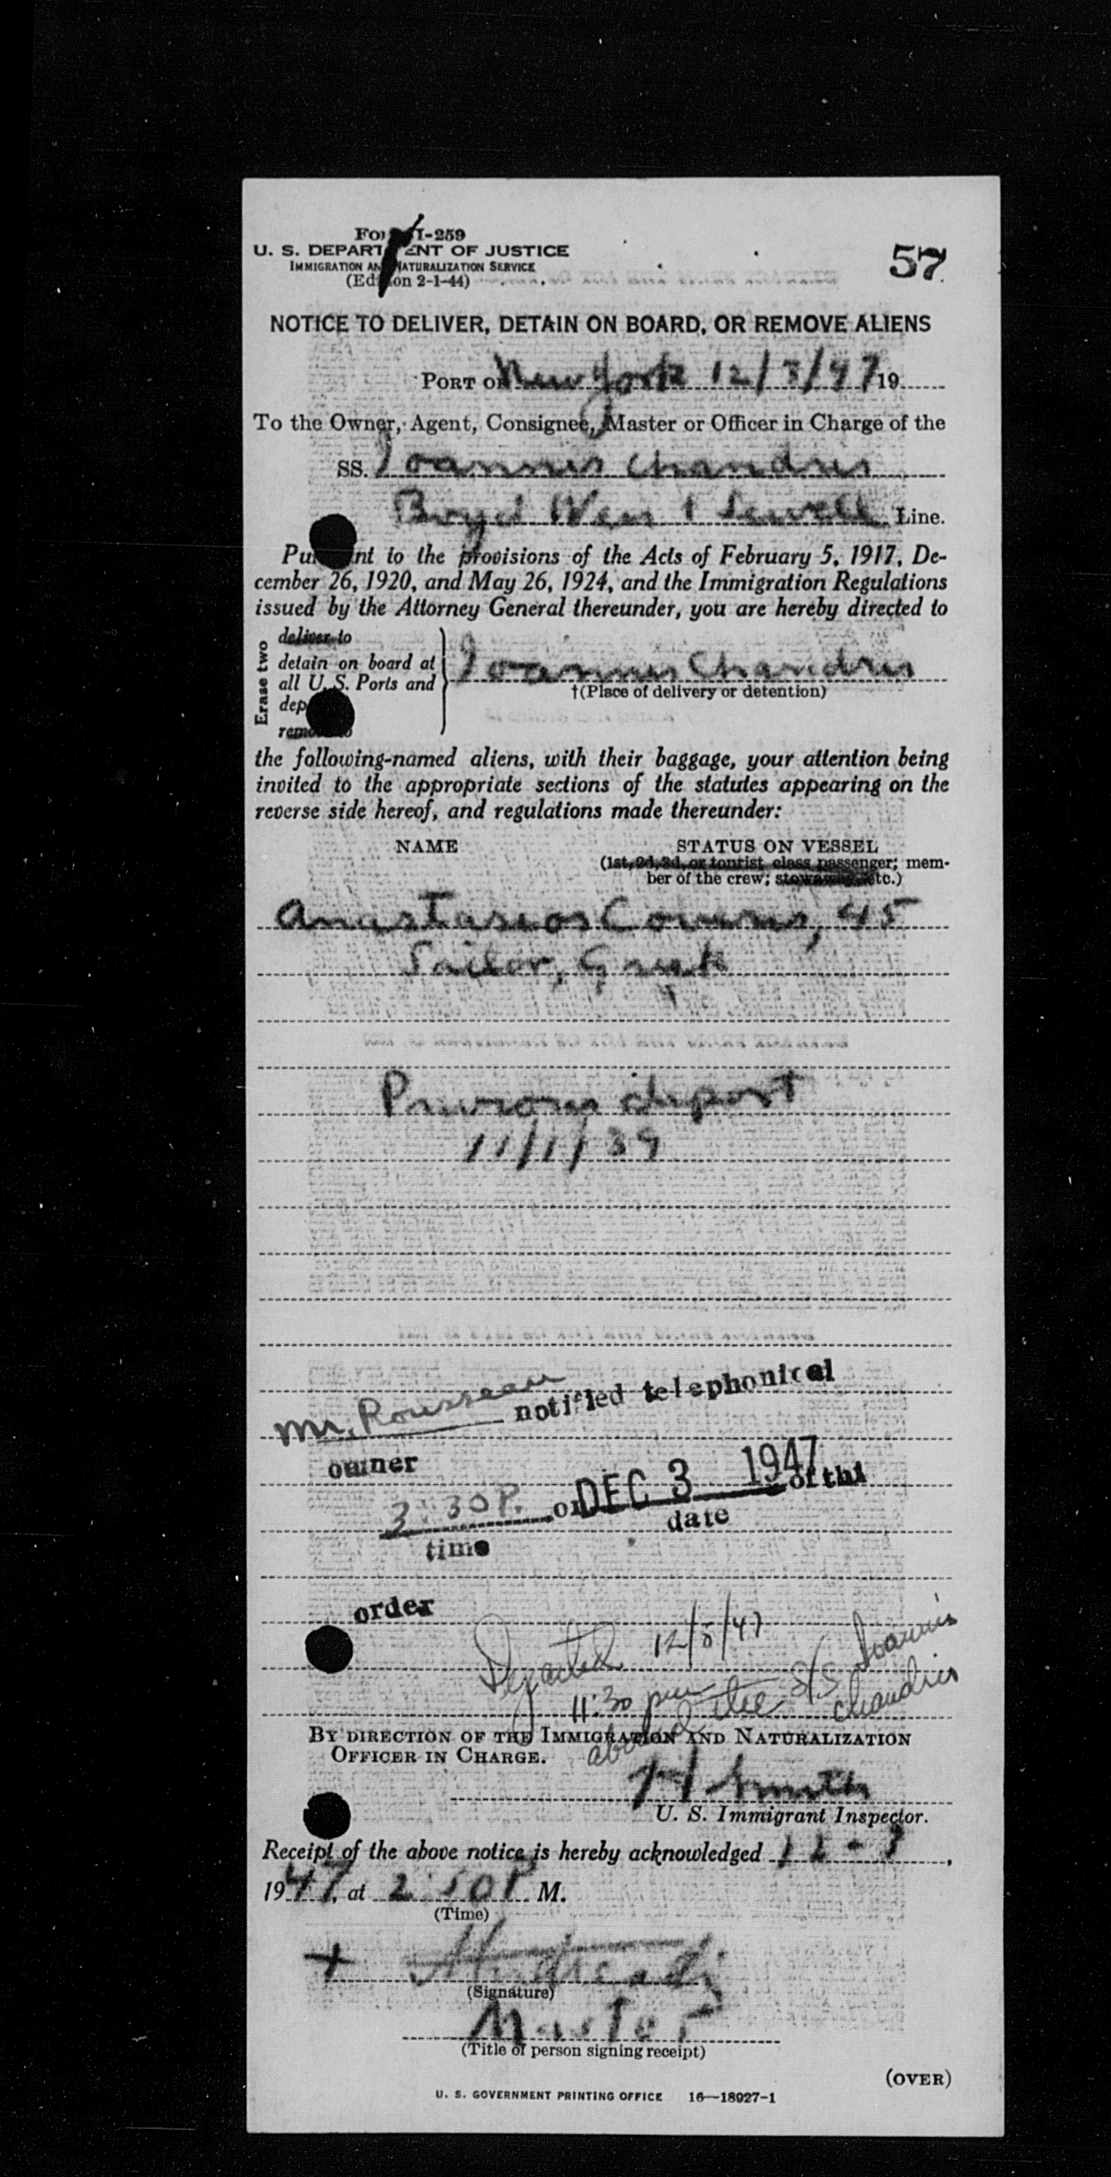 Form I-259
U. S. DEPARTMENT OF JUSTICE
IMMIGRATION AND NATURALIZATION SERVICE
(Edition 2-1-44)
57
NOTICE TO DELIVER, DETAIN ON BOARD, OR REMOVE ALIENS
PORT OF New York 12/3/47 19
To the Owner, Agent, Consignee, Master or Officer in Charge of the
SS. Ioannis Chandris
Boyd Weir & Sewell Line.
Pursuant to the provisions of the Acts of February 5, 1917, De-
cember 26, 1920, and May 26, 1924, and the Immigration Regulations
issued by the Attorney General thereunder, you are hereby directed to
Erase two
deliver to
detain on board at
all U. S. Ports and
dep
remove to
Ioannis Chandris
†(Place of delivery or detention)
the following-named aliens, with their baggage, your attention being
invited to the appropriate sections of the statutes appearing on the
reverse side hereof, and regulations made thereunder:
NAME STATUS ON VESSEL
(1st, 2d, 3d, or tourist class passenger; mem-
ber of the crew; stowaway, etc.)
Anastasios 45
Sailor, Greek
Previous deport
11/1/39
Mr. Rousseau notified telephonical
owner
3:30P. on DEC 3 1947 of thi
time date
order
Departed 12/5/47
11:30 pm
aboard the S/S Ioannis
Chandris
BY DIRECTION OF THE IMMIGRATION AND NATURALIZATION
OFFICER IN CHARGE.
H Smith
U. S. Immigrant Inspector.
Receipt of the above notice is hereby acknowledged 12-3,
1947, at 2:50P M.
(Time)
+
(Signature)
Master
(Title of person signing receipt)
(OVER)
U. S. GOVERNMENT PRINTING OFFICE 16—18927-1